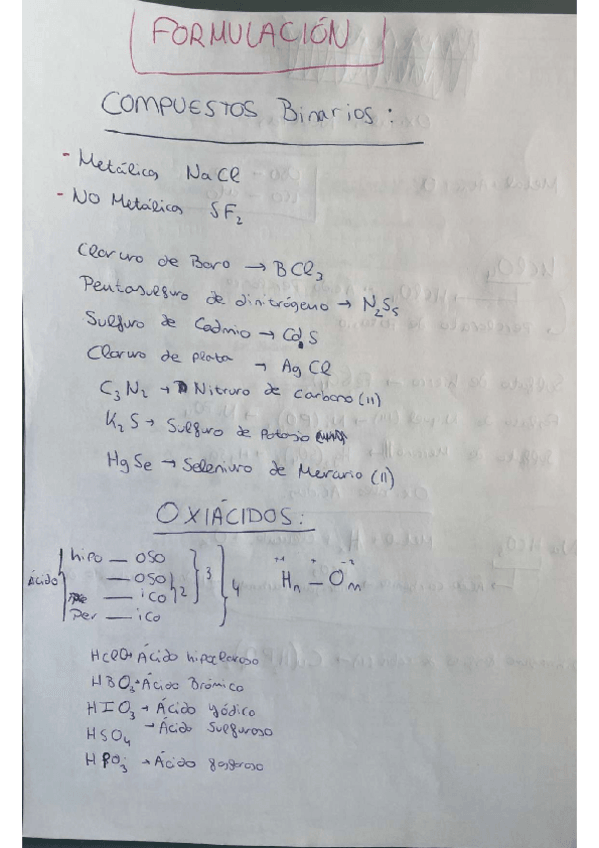 FORMULACIÓN
COMPUESTOS Binarios:
- Metálicos NaCl
- NO Metálicos SF2
Cloruro de Boro → BCl3
Pentasulfuro de dinitrógeno → N2S5
Sulfuro de Cadmio → CdS
Cloruro de plata → AgCl
C3N2 → Nitruro de Carbono (II)
K2S → Sulfuro de Potasio
HgSe → Seleniuro de Mercurio (II)
OXIÁCIDOS:
Ácido
hipo — OSO
— OSO
— iCO
per — iCO
2 3 4
+1 + -2
Hn — Om
HClO → Ácido hipocloroso
HBO3 → Ácido Brómico
HIO3 → Ácido yódico
HSO4 → Ácido Sulfuroso
HPO3 → Ácido fosforoso